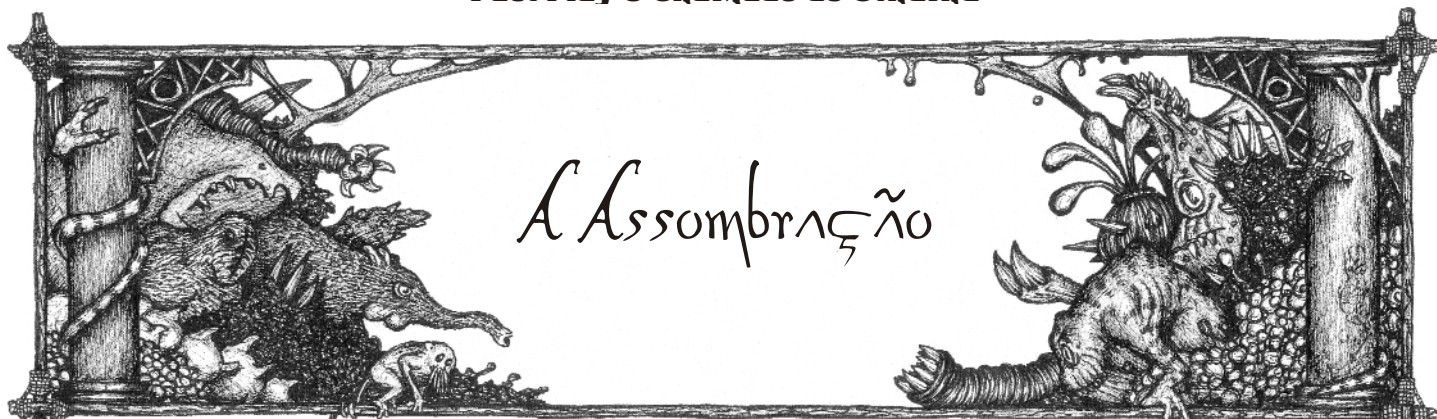 A Assombração